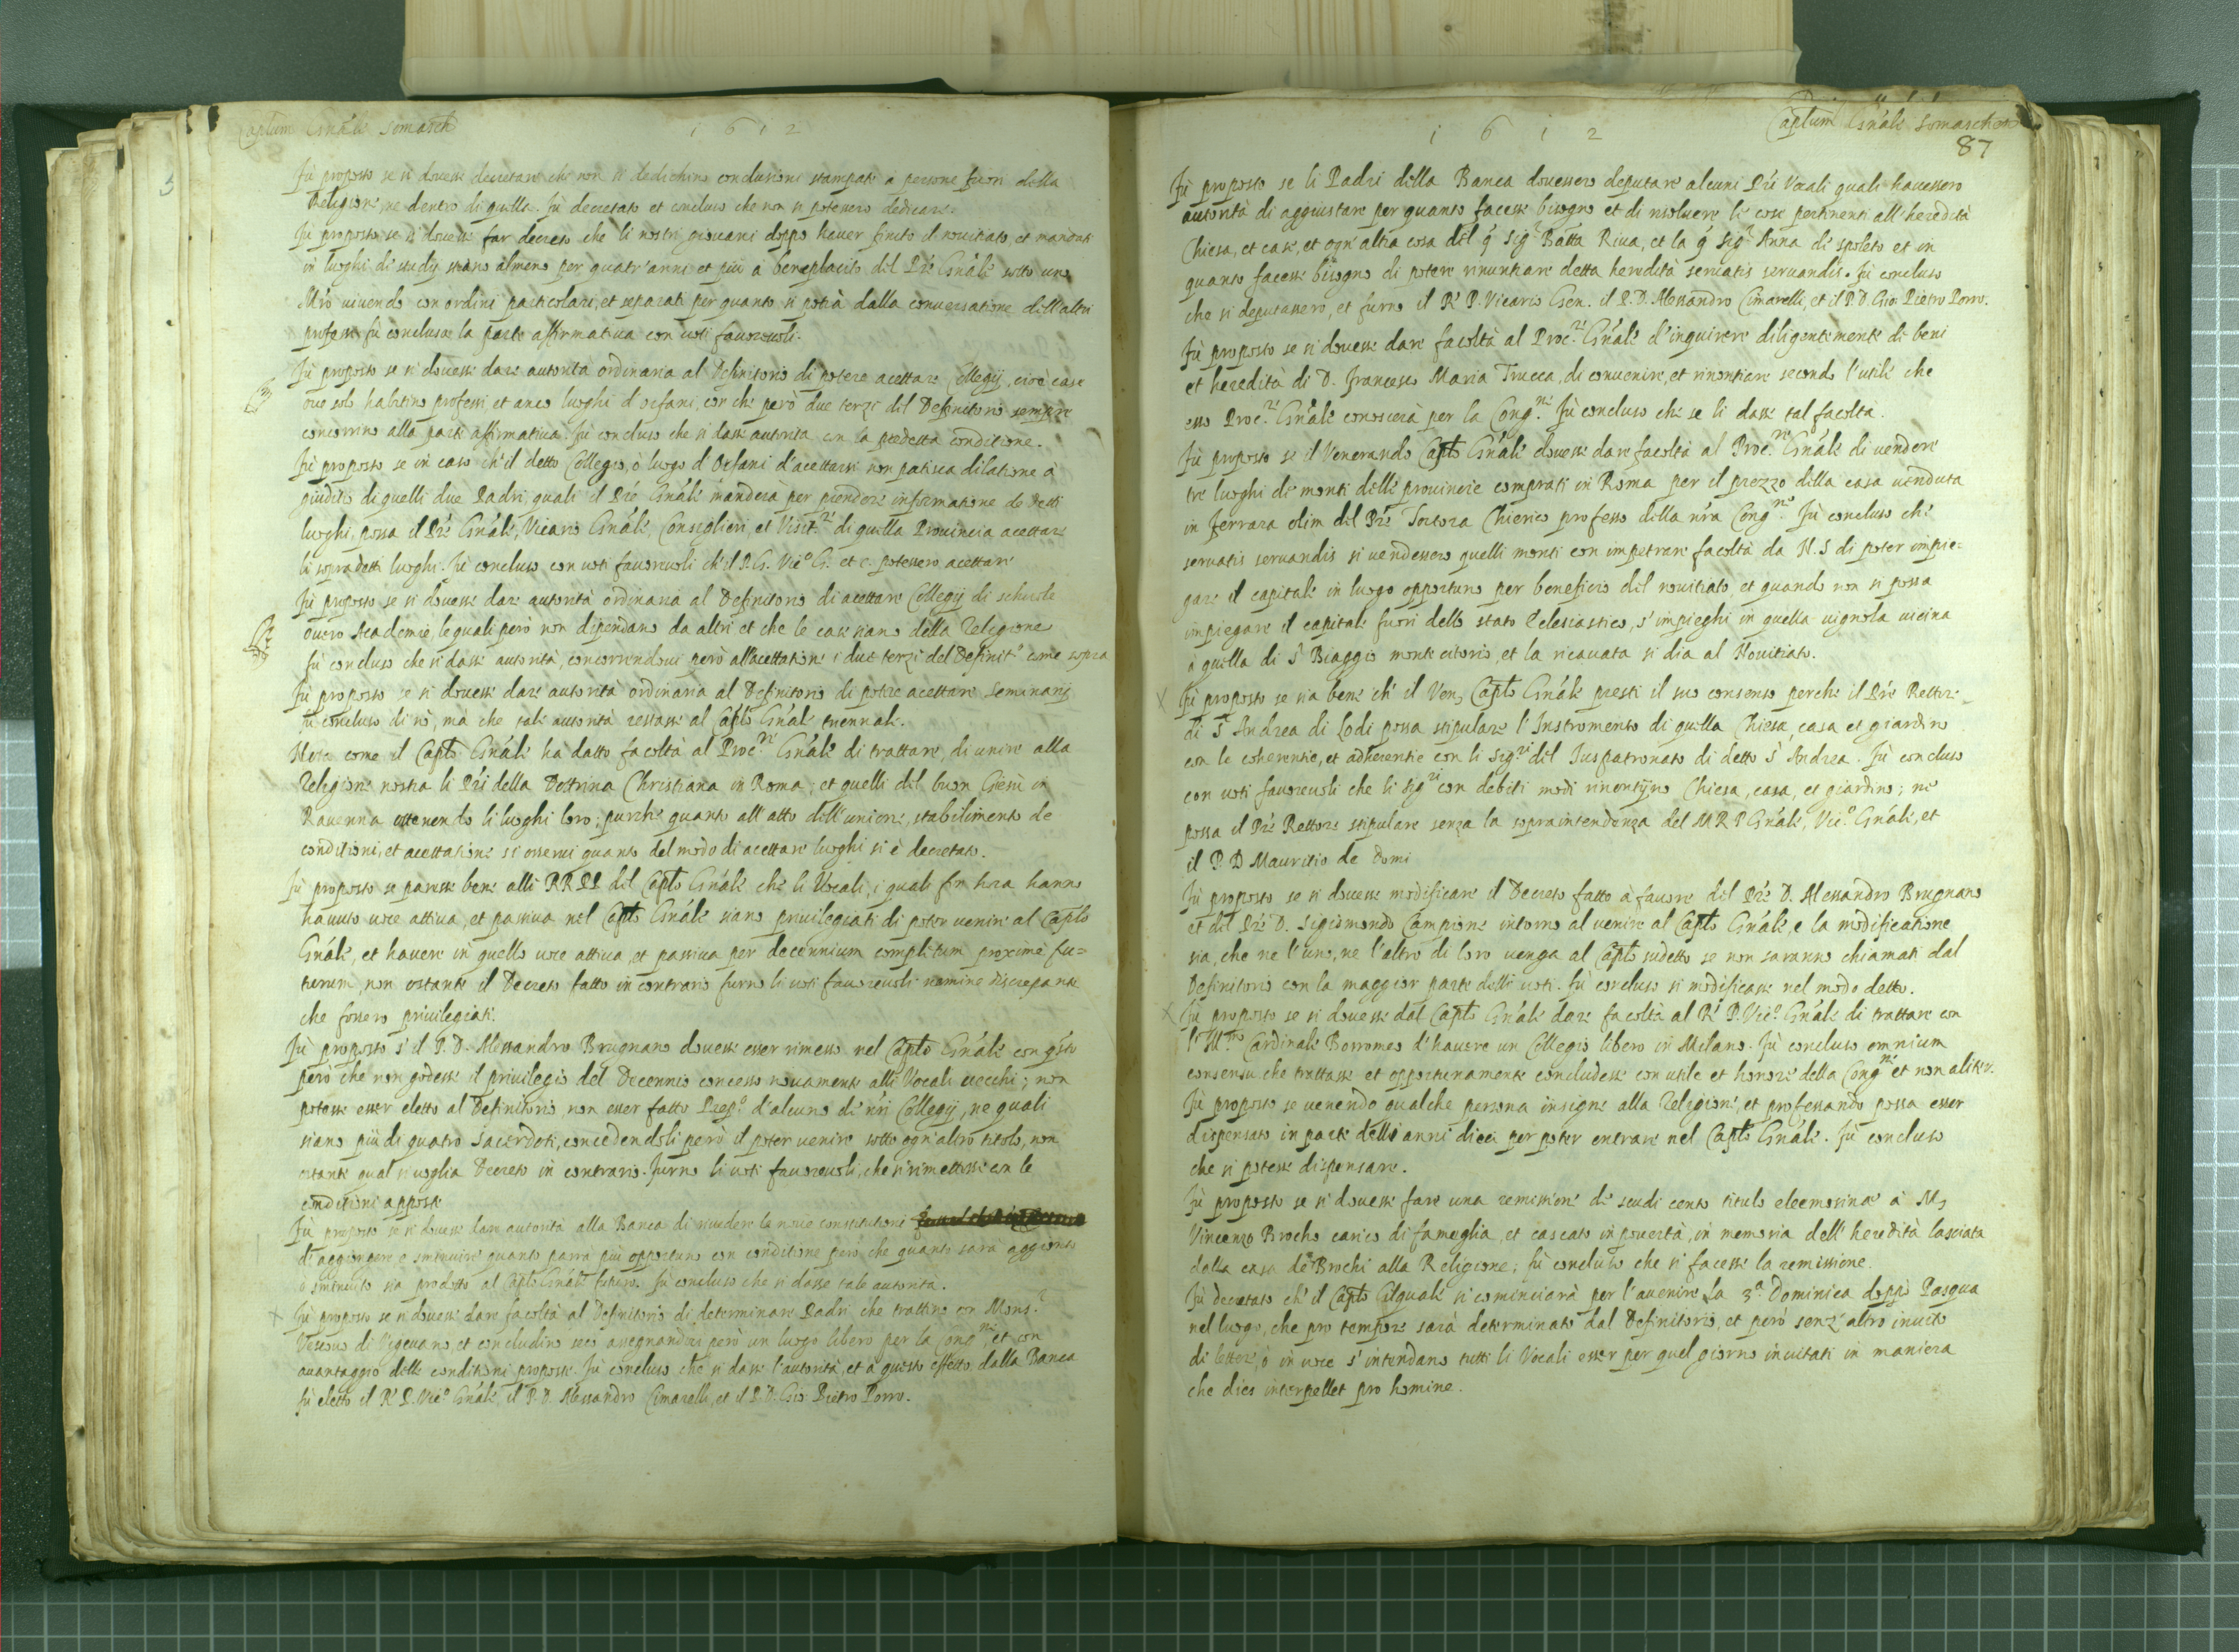 Captum Gnále Somasch
1612
Fù proposto se si douesse decretare che non si dedichino conclusioni stampate à persone fuori della
Religione, ne dentro di quella. Fù decretato et concluso che non si potessero dedicare.
Fù proposto se si douesse far decreto che li nostri giouani doppo hauer finito il nouitiato, et mandati
in luoghi di studij stiano almeno per quatr'anni et più à beneplacito del Prē Gnále sotto uno
Mro uiuendo con ordini particolari, et separati per quanto si potrà dalla conuersatione dell'altri
professi fù conclusa la parte affirmatiua con uoti fauoreuoli.
Fù proposto se si douesse dare autorità ordinaria al Definitorio di potere acettare Collegij, cioè case
oue solo habitino professi et anco luoghi d'orfani, con che però due terzi del Definitorio sempre
concorrino alla parte affirmatiua. Fù concluso che si dasse autorità con la predetta conditione.
Fù proposto se in caso ch'il detto Collegio, ò luogo d'Orfani d'acettarsi non patisca dilatione à
giuditio di quelli due Padri, quali il Prē Gnále manderà per prendere informatione de detti
luoghi, possa il Prē Gnále, Vicario Gnále, Consiglieri et Visit.ri di quella Prouincia acettare
li sopradetti luoghi. Fù concluso con uoti fauoreuoli ch'il P.G. Vic.o G. et c. potessero acettare
Fù proposto se si douesse dare autorità ordinaria al Definitorio di acettare Collegij di schuole
ouero Academie, le quali però non dipendano da altri et che le case siano della Religione
fù concluso che si dasse autorità, concorrendoui però all'acettatione i due terzi del Definit.o come sopra
Fù proposto se si douesse dare autorità ordinaria al Definitorio di potere acettare Seminarij
fù concluso di nò, mà che tale autorità restasse al Capto Gnále triennale.
Nota come il Capto Gnále hà datto facoltà al Proc.re Gnále di trattare, di unire alla
Religione nostra li Pri della Dottrina Christiana in Roma; et quelli del buon Giesù in
Rauenna ottenendo li luoghi loro; purche quanto all'atto dell'unione, stabilimento de
conditioni, et acettatione si osserui quanto del modo di acettare luoghi si è decretato.
Fù proposto se paresse bene alli RR PP del Capto Gnále che li Vocali, i quali fin hora hanno
hauuto uoce attiua, et passiua nel Capto Gnále siano priuilegiati di poter uenire al Capto
Gnále, et hauere in quello uoce attiua, et passiua per decennium completum proximè fu=
turum, non ostante il Decreto fatto in contrario furno li uoti fauoreuoli nemine discrepante
che fossero priuilegiati.
Fù proposto s'il P.D. Alessandro Brugnano douesse esser rimesso nel Capto Gnále con qsto
però che non godesse il priuilegio del Decennio concesso nouamente alli Vocali uecchi; non
potesse esser eletto al Definitorio, non esser fatto Prep.o d'alcuno de nri Collegij, ne quali
siano più di quatro Sacerdoti, concedendoli però il poter uenire sotto ogn'altro titolo, non
ostante qual si uoglia Decreto in contrario. Furno li uoti fauoreuoli, che si rimettesse con le
conditioni apposte
Fù proposto se si douesse dare autorità alla Banca di riuedere le noue constitutioni
di aggiongere e sminuire quanto parrà più opportuno con conditione però che quanto sarà aggionto
ò sminuito sia prodotto al Capto Gnále futuro. Fù concluso che si dasse tale autorità.
Fù proposto se si douesse dare facoltà al Definitorio di determinare Padri che trattino con Mons.r
Vescouo di Vigeuano, et concludino seco assegnandosi però un luogo libero per la Cong.ne et con
auantaggio delle conditioni proposte. Fù concluso che si dasse l'autorità, et à questo effetto dalla Banca
fù eletto il R P. Vic.o Gnále, il P.D. Alessandro Cimarelli, et il P.D. Gio: Pietro Porro.
Captum Gnále Somaschen
1612
87
Fù proposto se li Padri della Banca douessero deputare alcuni Pri Vocali quali hauessero
autorità di aggiustare per quanto facesse bisogno et di risoluere le cose pertinenti all'heredità
Chiesa, et case, et ogn'altra cosa del q Sig.r Batta Riua, et la q Sig.ra Anna di Spoleto et in
quanto facesse bisogno di potere rinuntiare detta heredità seruatis seruandis. Fù concluso
che si deputassero, et furno il R P. Vicario Gen. il P.D. Alessandro Cimarelli, et il P.D. Gio: Pietro Porro.
Fù proposto se si douesse dare facoltà al Proc.re Gnále d'inquirere diligentemente de beni
et heredità di D. Francesco Maria Trucca, di conuenire, et rinontiare secondo l'utile che
esso Proc.re Gnále conoscerà per la Cong.ne Fù concluso che se li dasse tal facoltà.
Fù proposto se il Venerando Capto Gnále douesse dare facoltà al Proc.re Gnále di uendere
tre luoghi de monti delle prouincie comprati in Roma per il prezzo della casa uenduta
in Ferrara olim del Prē Tortora Chierico professo della nra Cong.ne Fù concluso che
seruatis seruandis si uendessero quelli monti con impetrare facoltà da N.S di poter impie=
gare il capitale in luogo opportuno per beneficio del nouitiato, et quando non si possa
impiegare il capitale fuori dello stato Eclesiastico, s'impieghi in quella uignola uicina
à quella di S. Biaggio monte citorio, et la ricauata si dia al Nouitiato.
Fù proposto se sia bene ch'il Ven. Capto Gnále presti il suo consenso perche il Prē Rettore
di S. Andrea di Lodi possa stipulare l'Instromento di quella Chiesa, casa et giardino
con le coherentie, et adherentie con li Sig.ri del Iuspatronato di detto S. Andrea. Fù concluso
con uoti fauoreuoli che li Sig.ri con debiti modi rinontijno Chiesa, casa, et giardino; ne
possa il Prē Rettore stipulare senza la sopraintendenza del M R P Gnále, Vic.o Gnále, et
il P. D Mauritio de Domi
Fù proposto se si douesse modificare il Decreto fatto à fauore del Prē D. Alessandro Brugnano
et del Prē D. Sigismondo Campione intorno al uenire al Capto Gnále, e la modificatione
sia, che ne l'uno, ne l'altro di loro uenga al Capto sudetto se non saranno chiamati dal
Definitorio con la maggior parte delli uoti. Fù concluso si modificasse nel modo detto.
Fù proposto se si douesse dal Capto Gnále dare facoltà al R P. Vic.o Gnále di trattare con
l'Ill.mo Cardinale Borromeo d'hauere un Collegio libero in Milano. Fù concluso omnium
consensu che trattasse et opportunamente concludesse con utile et honore della Cong.ne et non aliter.
Fù proposto se uenendo qualche persona insigne alla Religione, et professando possa esser
dispensato in parte delli anni dieci per poter entrare nel Capto Gnále. Fù concluso
che si potesse dispensare.
Fù proposto se si douesse fare una remissione de scudi cento titulo eleemosinae à M.
Vincenzo Brocho carico di fameglia, et cascato in pouertà, in memoria dell'heredità lasciata
dalla casa de Brochi alla Religione; fù concluso che si facesse la remissione.
Fù decretato ch'il Capto Gñale si cominciarà per l'auenire la 3.a Dominica doppò Pasqua
nel luogo, che pro tempore sarà determinato dal Definitorio, et però senz'altro inuito
di lettere, ò in uoce s'intendano tutti li Vocali esser per quel giorno inuitati in maniera
che dies interpellet pro homine.